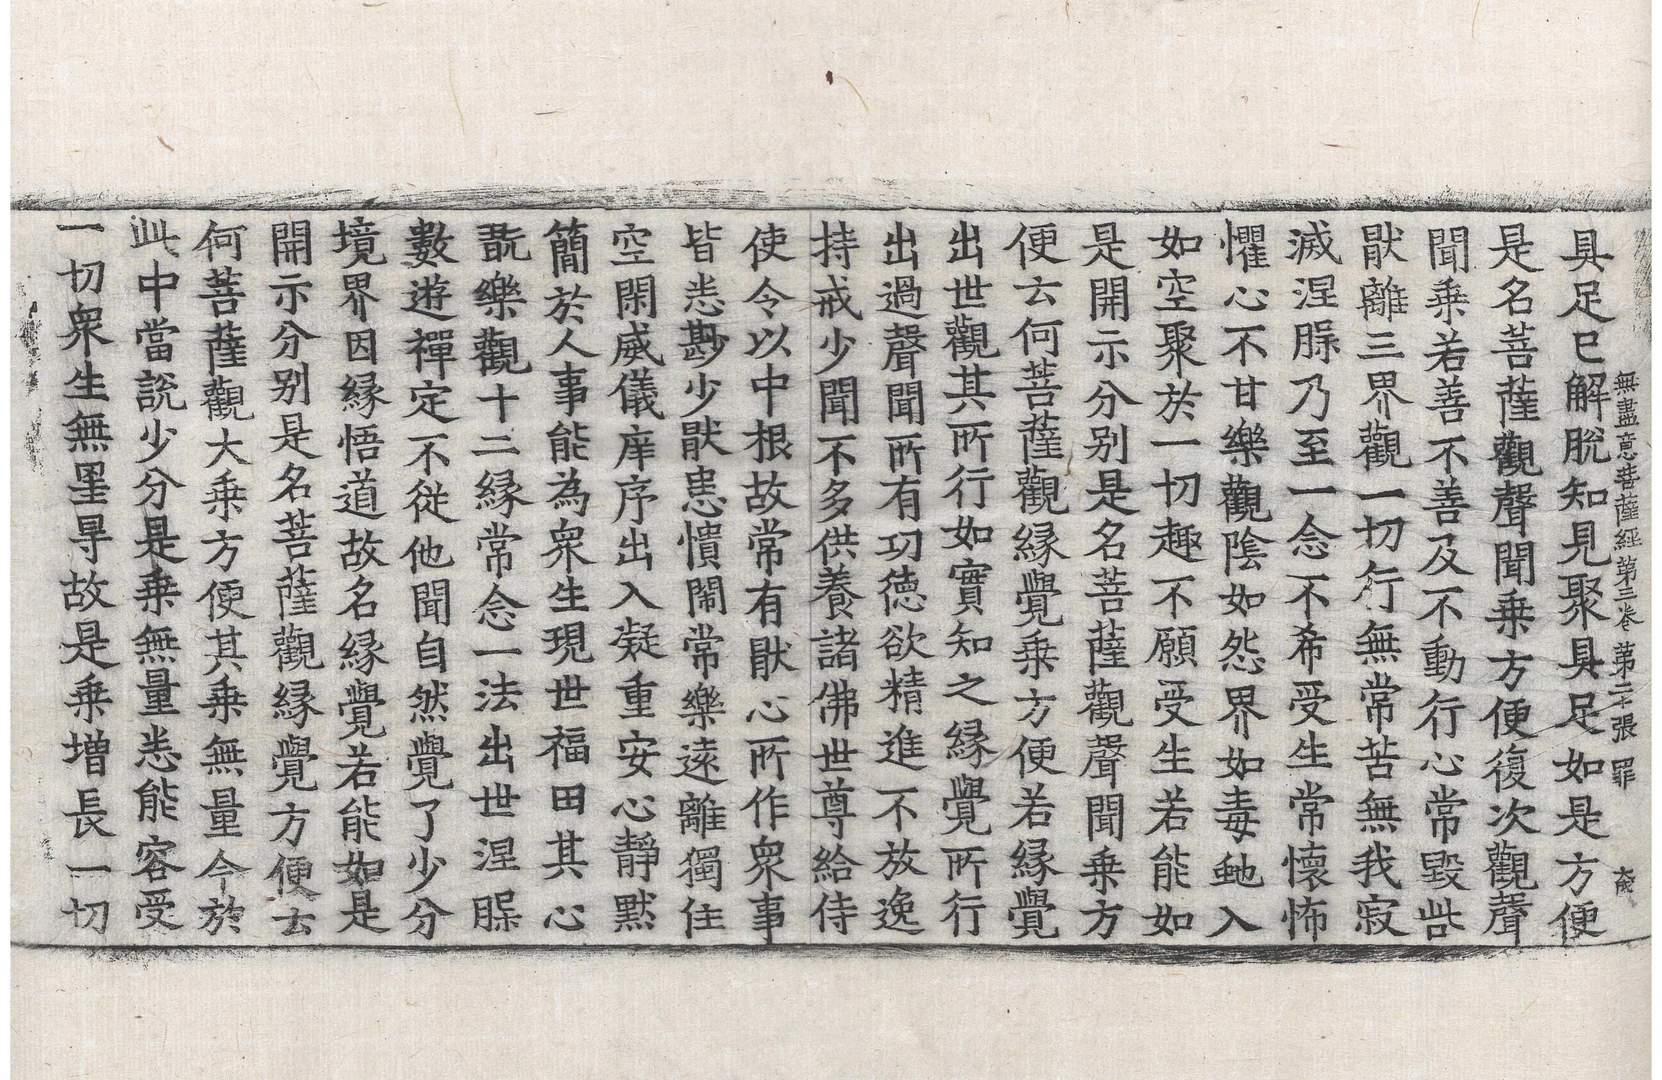 無盡意菩薩經第三卷 第二十張 罪
具足已解脫知見聚具足如是方便
是名菩薩觀聲聞乗方便復次觀聲
聞乗若善不善及不動行心常毀呰
猒離三界觀一切行無常苦無我寂
滅涅槃乃至一念不希受生常懷怖
懼心不甘樂觀陰如怨界如毒虵入
如空聚於一切趣不願受生若能如
是開示分别是名菩薩觀聲聞乗方
便云何菩薩觀縁覺乗方便若縁覺
出世觀其所行如實知之縁覺所行
出過聲聞所有功德欲精進不放逸
持戒少聞不多供養諸佛世尊給侍
使令以中根故常有猒心所作衆事
皆悉尠少猒患憒閙常樂遠離獨住
空閑威儀庠序出入凝重安心靜默
簡於人事能為衆生現世福田其心
翫樂觀十二縁常念一法出世涅槃
數遊禪定不從他聞自然覺了少分
境界因縁悟道故名縁覺若能如是
開示分别是名菩薩觀縁覺方便云
何菩薩觀大乗方便其乗無量今於
此中當說少分是乗無量悉能容受
一切衆生無罣㝵故是乗增長一切